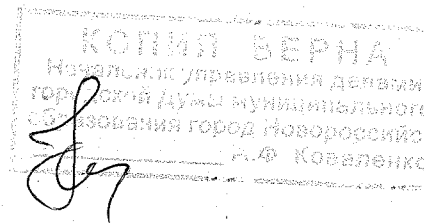 КОПИЯ ВЕРНА
Начальник управления делами
городской Думы муниципального
образования город Новороссийс
А.Ф Коваленко